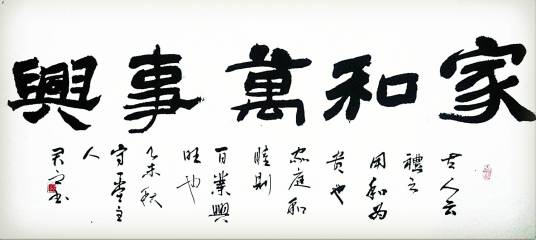 家和萬事興
古人云
禮之
用和為
贵也
家庭和
睦則
百業興
旺也
乙未秋
主
人